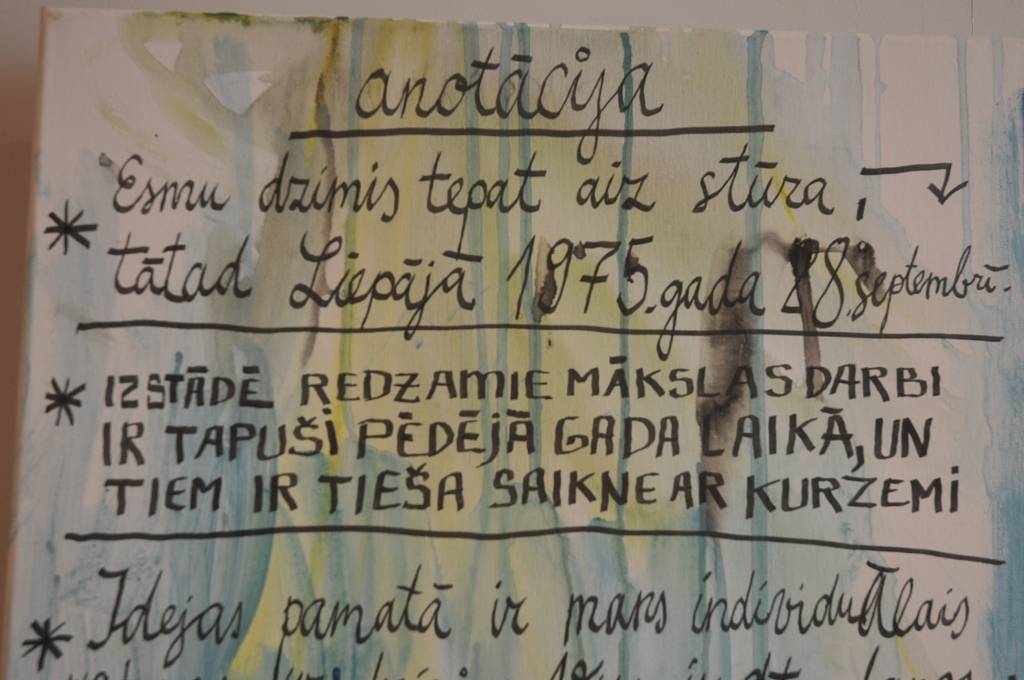 anotācija
* Esmu dzimis tepat aiz stūra,
tātad Liepājā 1975.gada 28.septembrī.
* IZSTĀDĒ REDZAMIE MĀKSLAS DARBI
IR TAPUŠI PĒDĒJĀ GADA LAIKĀ, UN
TIEM IR TIEŠA SAIKNE AR KURZEMI
* Idejas pamatā ir mans individuālais